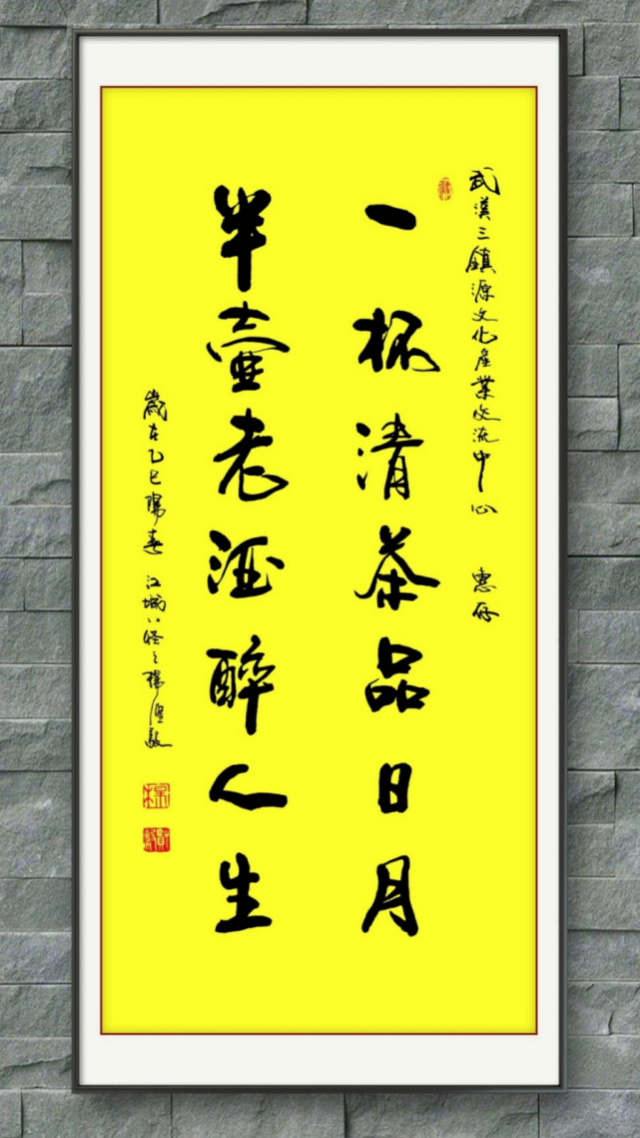 武漢三鎮源文化産業交流中心 惠存
一杯清茶品日月
半壺老酒醉人生
歲在乙巳陽春 江城八怪之楊